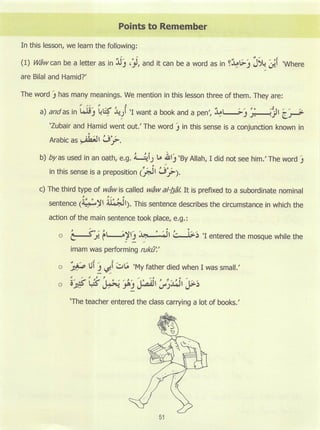 Points to Remember
In this lesson, we learn the following:
(1) Wāw can be a letter as in وَلَدٌ، وَ, and it can be a word as in أَيْنَ بِلَالٌ وَحَامِدٌ؟ 'Where
are Bilal and Hamid?'
The word وَ has many meanings. We mention in this lesson three of them. They are:
a) and as in أُرِيدُ كِتَابًا وَقَلَمًا 'I want a book and a pen', خَرَجَ الزُّبَيْرُ وَحَامِدٌ
'Zubair and Hamid went out.' The word وَ in this sense is a conjunction known in
Arabic as حَرْفُ الْعَطْفِ.
b) by as used in an oath, e.g. وَاللهِ مَا رَأَيْتُهُ 'By Allah, I did not see him.' The word وَ
in this sense is a preposition (حَرْفُ الْجَرِّ).
c) The third type of wāw is called wāw al-ḥāl. It is prefixed to a subordinate nominal
sentence (الْجُمْلَةُ الاِسْمِيَّةُ). This sentence describes the circumstance in which the
action of the main sentence took place, e.g.:
o دَخَلْتُ الْمَسْجِدَ وَالْإِمَامُ يَرْكَعُ 'I entered the mosque while the
imam was performing rukū'.'
o مَاتَ أَبِي وَأَنَا صَغِيرٌ 'My father died when I was small.'
o دَخَلَ الْمُدَرِّسُ الْفَصْلَ وَهُوَ يَحْمِلُ كُتُبًا كَثِيرَةً
'The teacher entered the class carrying a lot of books.'
51